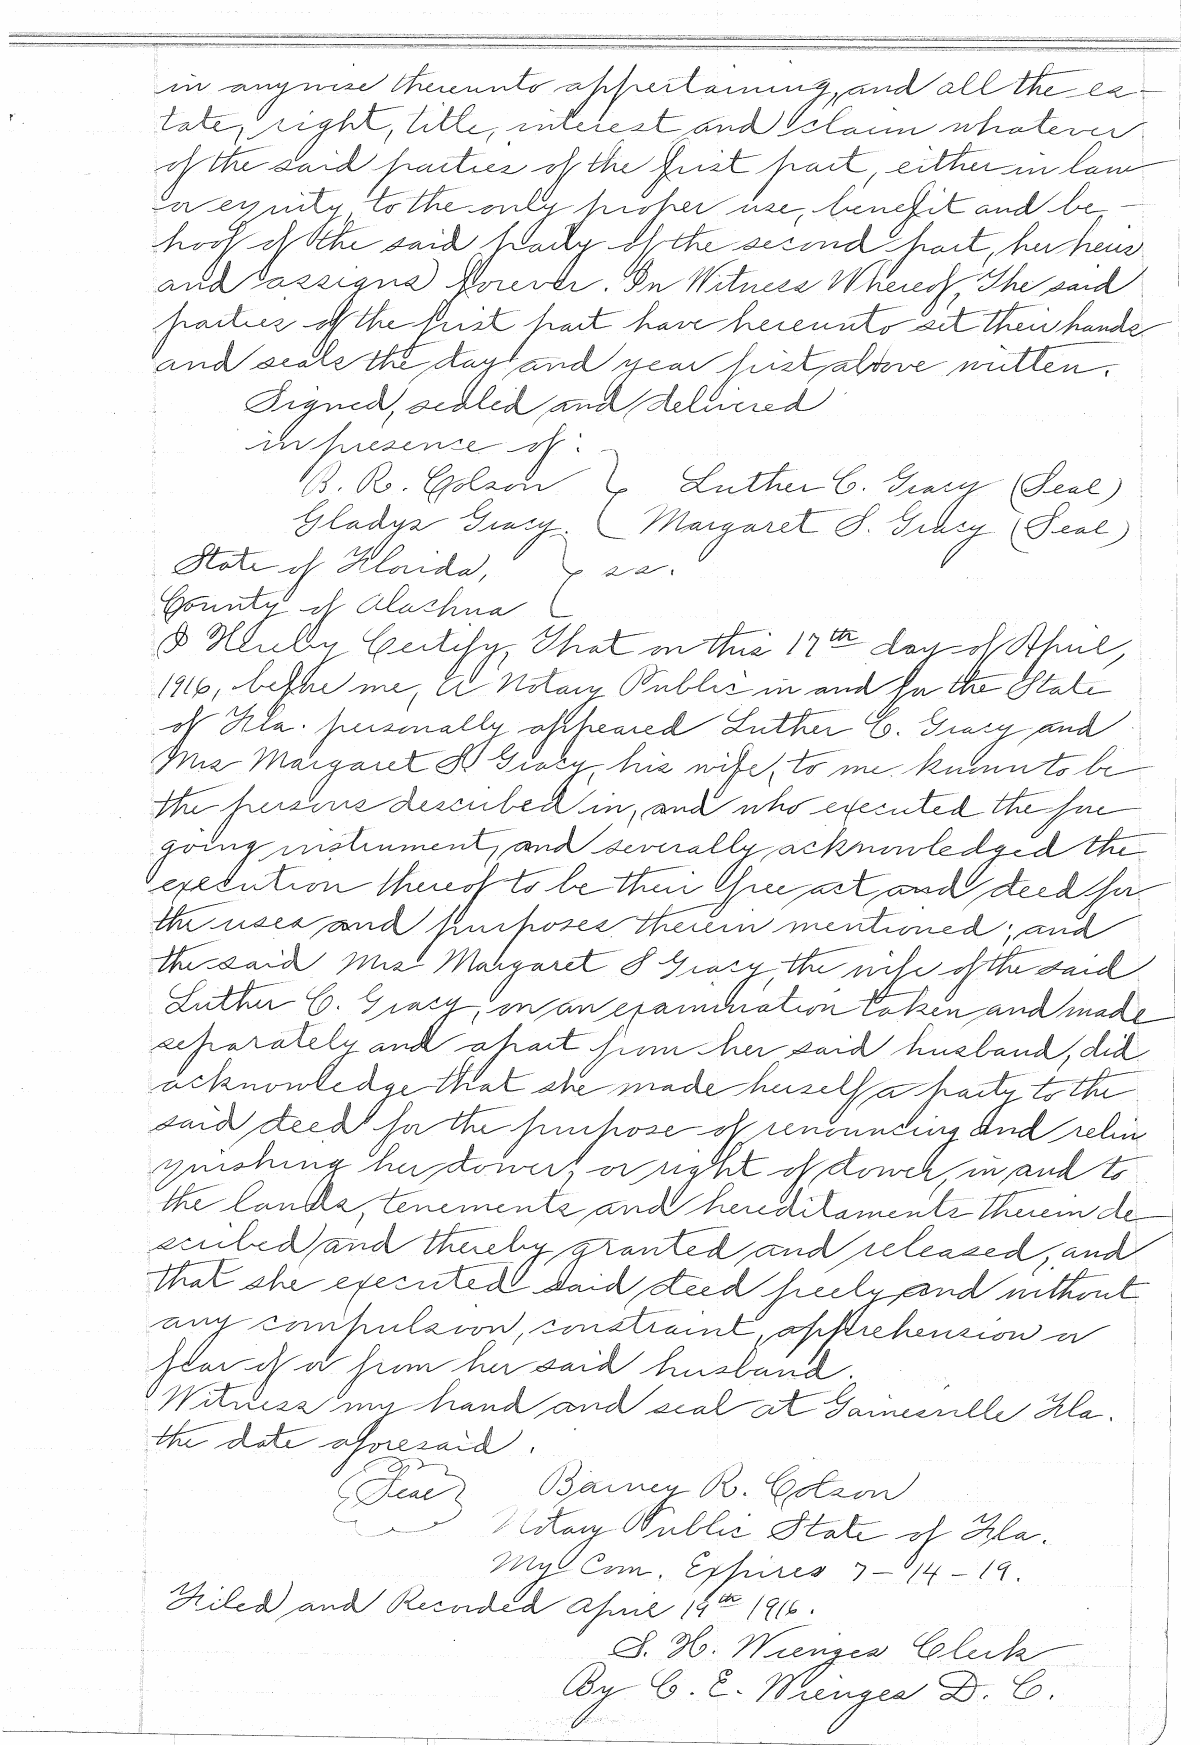 in anywise thereunto appertaining, and all the es-
tate, right, title, interest and claim whatever
of the said parties of the first part, either in law
or equity, to the only proper use, benefit and be-
hoof of the said party of the second part, her heirs
and assigns forever. In Witness Whereof, The said
parties of the first part have hereunto set their hands
and seals the day and year first above written.
Signed, sealed and delivered
in presence of:
B. R. Colson } Luther C. Gracy (Seal)
Gladys Gracy. Margaret S. Gracy (Seal)
State of Florida, } ss.
County of Alachua
I Hereby Certify, That on this 17th day of April,
1916, before me, A Notary Public in and for the State
of Fla. personally appeared Luther C. Gracy and
Mrs Margaret S Gracy, his wife, to me known to be
the persons described in, and who executed the fore
going instrument, and severally acknowledged the
execution thereof to be their free act and deed for
the uses and purposes therein mentioned; and
the said Mrs Margaret S Gracy, the wife of the said
Luther C. Gracy, on an examination taken and made
separately and apart from her said husband, did
acknowledge that she made herself a party to the
said deed for the purpose of renouncing and relin
quishing her dower, or right of dower, in and to
the lands, tenements and hereditaments therein de
scribed and thereby granted and released, and
that she executed said deed freely and without
any compulsion, constraint, apprehension or
fear of or from her said husband.
Witness my hand and seal at Gainesville Fla.
the date aforesaid.
(Seal) Barney R. Colson
Notary Public State of Fla.
My Com. Expires 7-14-19.
Filed and Recorded April 19th 1916.
S. H. Wienges Clerk
By C. E. Wienges D. C.